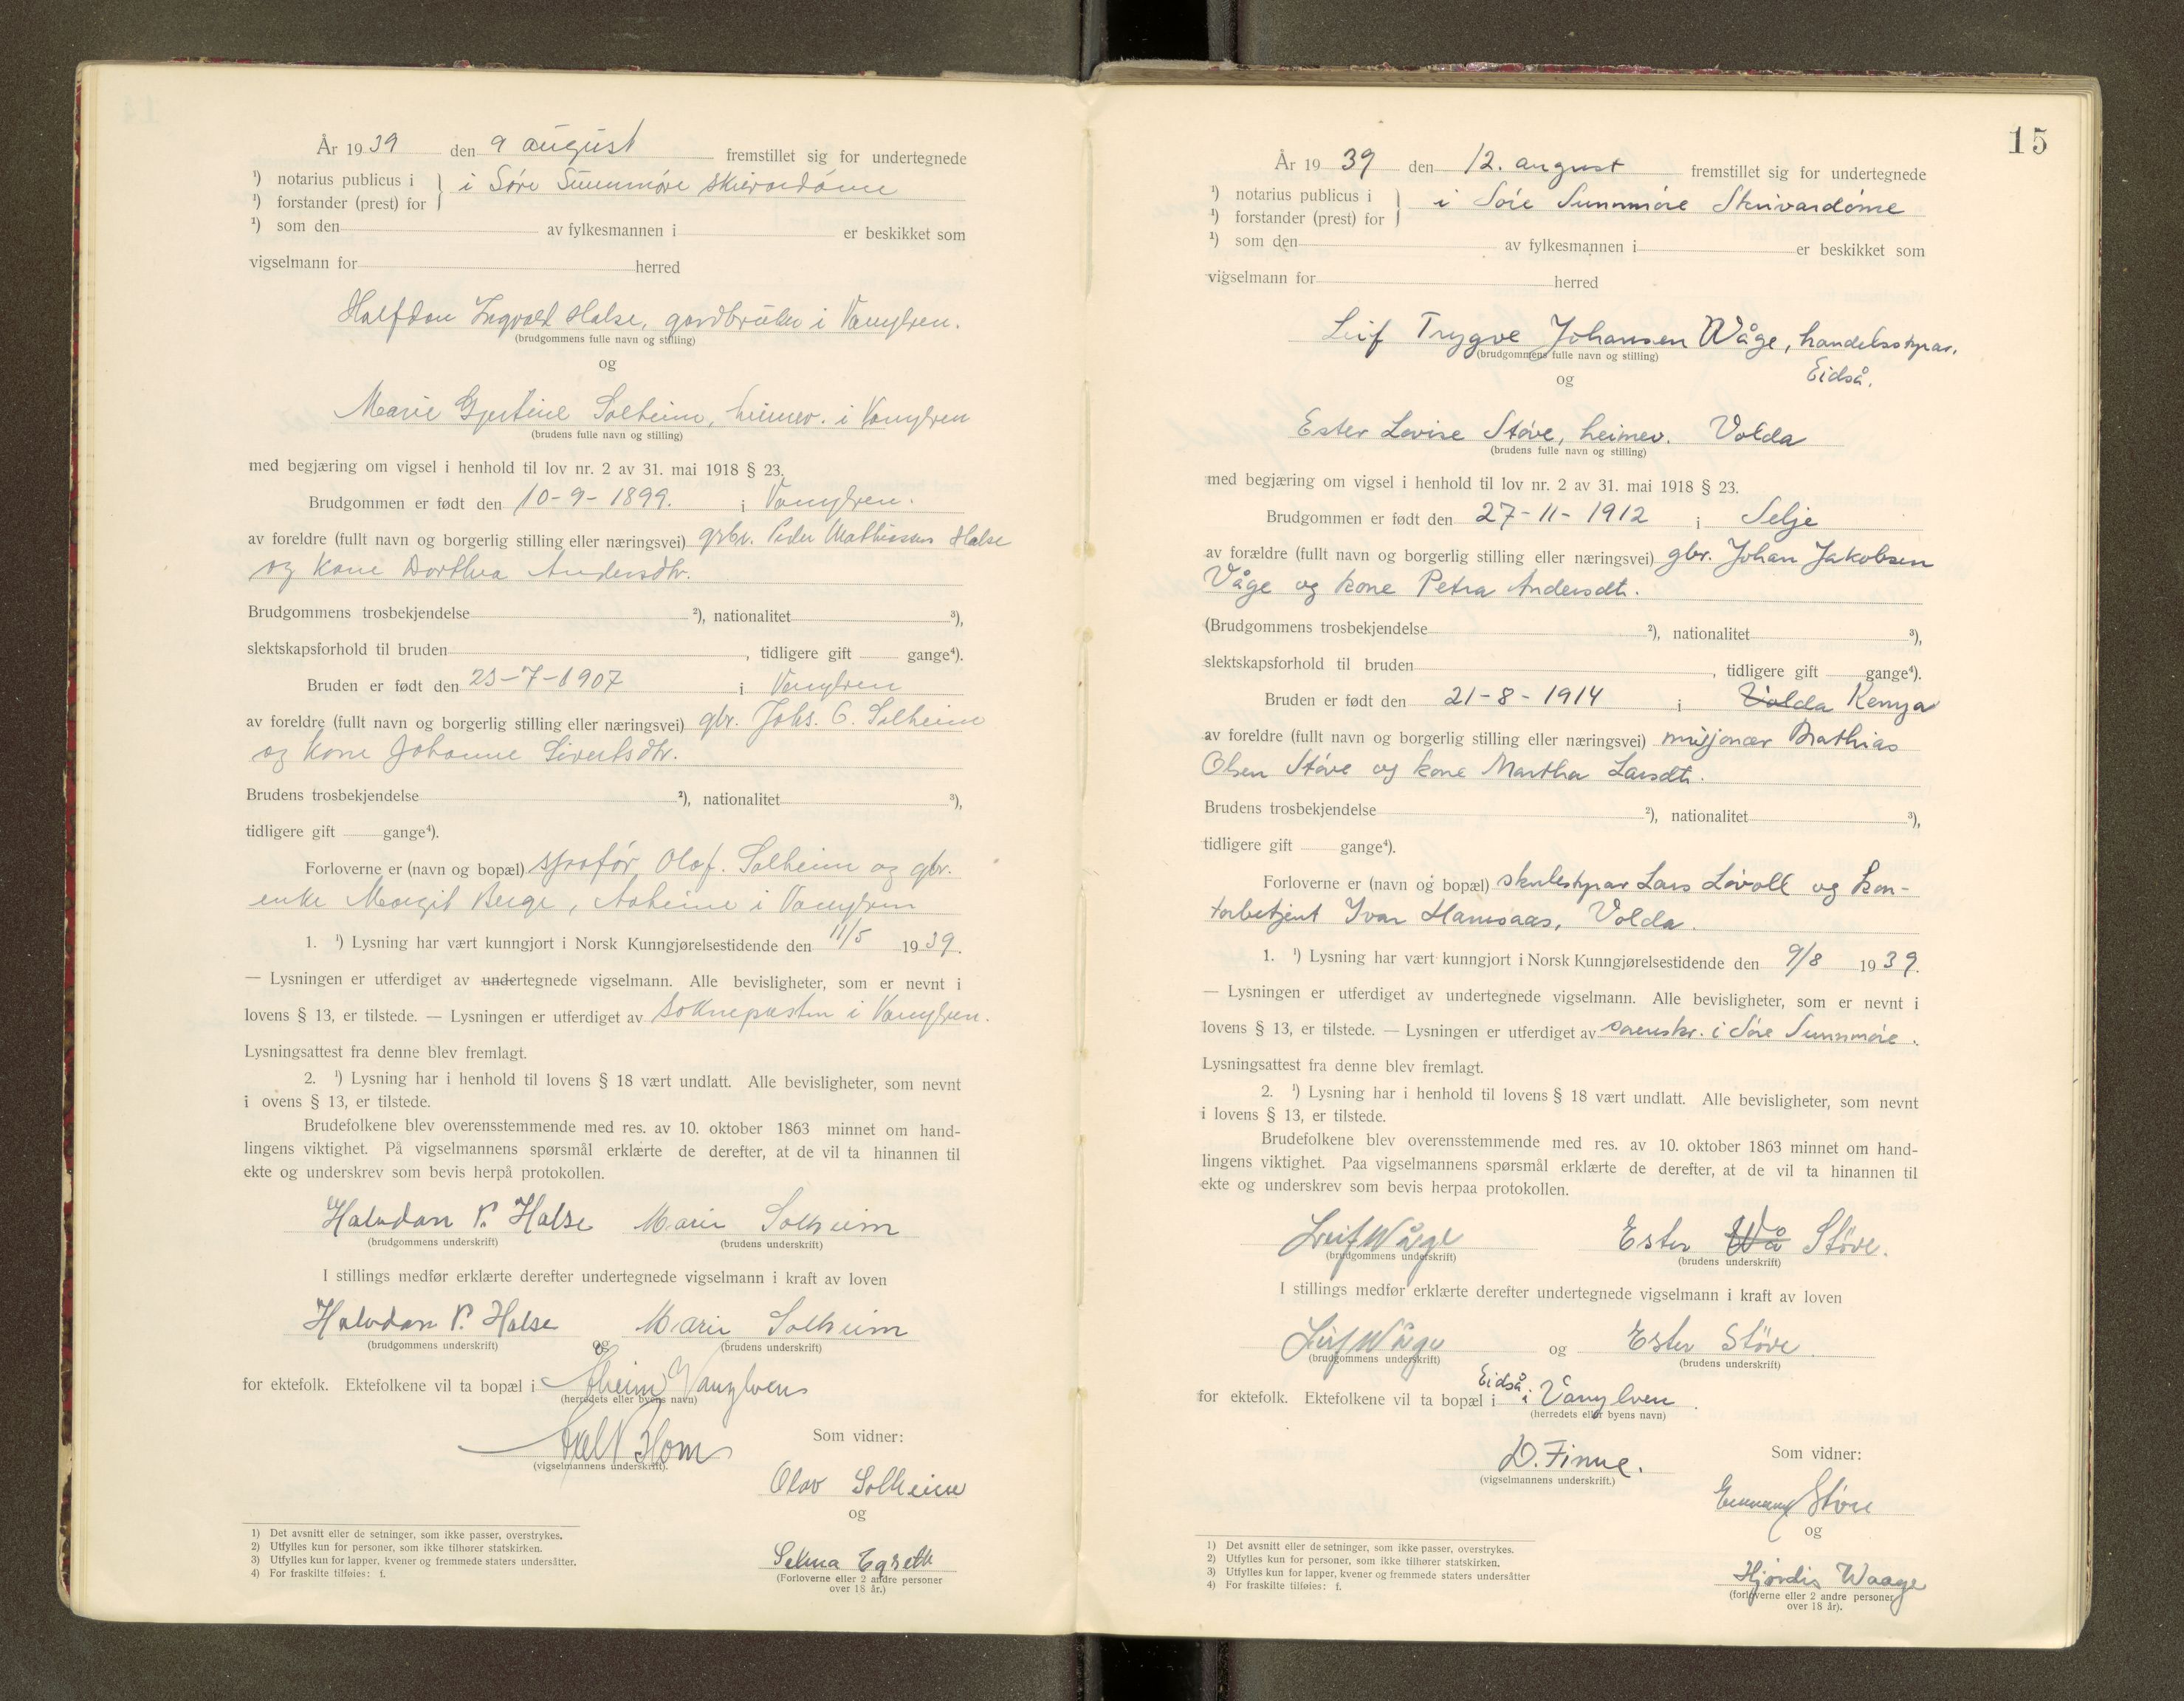 År 1939 den 9 august fremstillet sig for undertegnede
¹) notarius publicus i } i Søre Sunnmøre skrivardøme
¹) forstander (prest) for
¹) som den av fylkesmannen i er beskikket som
vigselmann for herred
Halfdan Ingvald Halse, gardbruker i Vanylven.
(brudgommens fulle navn og stilling)
og
Marie Gjertine Solheim, heimev. i Vanylven
(brudens fulle navn og stilling)
med begjæring om vigsel i henhold til lov nr. 2 av 31. mai 1918 § 23.
Brudgommen er født den 10-9-1899. i Vanylven.
av foreldre (fullt navn og borgerlig stilling eller næringsvei) grbr. Peder Mathiassen Halse
og kone Dorthea Andersdtr.
Brudgommens trosbekjendelse ²), nationalitet ³),
slektskapsforhold til bruden , tidligere gift gange⁴).
Bruden er født den 23-7-1907 i Vanylven
av foreldre (fullt navn og borgerlig stilling eller næringsvei) gbr. Johs. G. Solheim
og kone Johanne Sivertsdtr.
Brudens trosbekjendelse ²), nationalitet ³),
tidligere gift gange⁴).
Forloverne er (navn og bopæl) sjåfør Olaf. Solheim og gbr.
enke Margit Berge, Aaheim i Vanylven
1. ¹) Lysning har vært kunngjort i Norsk Kunngjørelsestidende den 11/5 1939.
— Lysningen er utferdiget av undertegnede vigselmann. Alle bevisligheter, som er nevnt i
lovens § 13, er tilstede. — Lysningen er utferdiget av soknepresten i Vanylven.
Lysningsattest fra denne blev fremlagt.
2. ¹) Lysning har i henhold til lovens § 18 vært undlatt. Alle bevisligheter, som nevnt
i ovens § 13, er tilstede.
Brudefolkene blev overensstemmende med res. av 10. oktober 1863 minnet om hand-
lingens viktighet. På vigselmannens spørsmål erklærte de derefter, at de vil ta hinannen til
ekte og underskrev som bevis herpå protokollen.
Halvdan P. Halse Marie Solheim
(brudgommens underskrift) (brudens underskrift)
I stillings medfør erklærte derefter undertegnede vigselmann i kraft av loven
Halvdan P. Halse og Marie Solheim
(brudgommens underskrift) (brudens underskrift)
for ektefolk. Ektefolkene vil ta bopæl i Åheim Vanylven
(herredets eller byens navn)
Som vidner:
(vigselmannens underskrift).
Olav Solheim
og
Selma Egseth
(Forloverne eller 2 andre personer
over 18 år.)
1) Det avsnitt eller de setninger, som ikke passer, overstrykes.
2) Utfylles kun for personer, som ikke tilhører statskirken.
3) Utfylles kun for lapper, kvener og fremmede staters undersåtter.
4) For fraskilte tilføies: f.
15
År 1939 den 12. august fremstillet sig for undertegnede
¹) notarius publicus i } i Søre Sunnmøre Skrivardøme
¹) forstander (prest) for
¹) som den av fylkesmannen i er beskikket som
vigselmann for herred
Leif Trygve Johansen Våge, handelsstyrar,
(brudgommens fulle navn og stilling)
og Eidså.
Ester Lovise Støve, heimev. Volda
(brudens fulle navn og stilling)
med begjæring om vigsel i henhold til lov nr. 2 av 31. mai 1918 § 23.
Brudgommen er født den 27-11-1912 i Selje
av forældre (fullt navn og borgerlig stilling eller næringsvei) gbr. Johan Jakobsen
Våge og kone Petra Andersdtr.
(Brudgommens trosbekjendelse ²), nationalitet ³),
slektskapsforhold til bruden , tidligere gift gange⁴).
Bruden er født den 21-8-1914 i Volda Kenya
av foreldre (fullt navn og borgerlig stilling eller næringsvei) misjonær Mathias
Olsen Støve og kone Martha Larsdtr.
Brudens trosbekjendelse ²), nationalitet ³),
tidligere gift gange⁴).
Forloverne er (navn og bopæl) skulestyrar Lars Løvoll og kon-
torbetjent Ivar Hamsaas, Volda.
1. ¹) Lysning har vært kunngjort i Norsk Kunngjørelsestidende den 9/8 1939.
— Lysningen er utferdiget av undertegnede vigselmann. Alle bevisligheter, som er nevnt i
lovens § 13, er tilstede. — Lysningen er utferdiget av sorenskr. i Søre Sunnmøre.
Lysningsattest fra denne blev fremlagt.
2. ¹) Lysning har i henhold til lovens § 18 vært undlatt. Alle bevisligheter, som nevnt
i lovens § 13, er tilstede.
Brudefolkene blev overensstemmende med res. av 10. oktober 1863 minnet om hand-
lingens viktighet. Paa vigselmannens spørsmål erklærte de derefter, at de vil ta hinannen til
ekte og underskrev som bevis herpaa protokollen.
Leif Wåge Ester Wå Støve.
(brudgommens underskrift) (brudens underskrift)
I stillings medfør erklærte derefter undertegnede vigselmann i kraft av loven
Leif Wåge og Ester Støve.
(brudgommens underskrift) (brudens underskrift)
for ektefolk. Ektefolkene vil ta bopæl i Eidså i Vanylven.
(herredets eller byens navn)
D. Finne. Som vidner:
(vigselmannens underskrift.)
Emmanuel Støve
og
Hjørdis Waage
(forloverne eller 2 andre personer
over 18 år).
1) Det avsnitt eller de setninger, som ikke passer, overstrykes.
2) Utfylles kun for personer, som ikke tilhører statskirken.
3) Utfylles kun for lapper, kvener og fremmede staters undersåtter
4) For fraskilte tilføies: f.